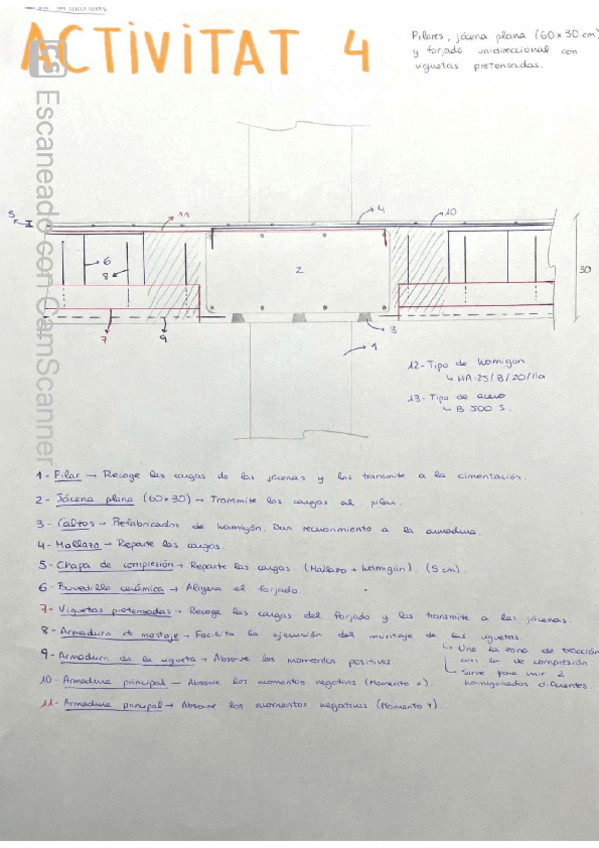 ACTIVITAT 4
Pilares, jácena plana (60x30 cm)
y forjado unidireccional con
viguetas pretensadas.
CS Escaneado con CamScanner
5
11
4
10
6
8
2
30
7
9
3
1
12- Tipo de hormigon
↳ HA-25/B/20/IIa
13- Tipo de acero
↳ B 500 S.
1- Pilar → Recoge las cargas de las jácenas y las transmite a la cimentación.
2- Jácena plana (60x30) → Transmite las cargas al pilar.
3- Calzos → Prefabricados de hormigón. Dan recubrimiento a la armadura.
4- Mallazo → Reparte las cargas.
5- Chapa de compresión → Reparte las cargas. (Mallazo + hormigón). (5 cm).
6- Bovedilla cerámica → Aligera el forjado.
7- Viguetas pretensadas → Recoge las cargas del forjado y las transmite a las jácenas.
8- Armadura de montaje → Facilita la ejecución del montaje de las viguetas.
↳ Une la zona de tracción
con la de compresión
↳ Sirve para unir 2
hormigonados diferentes
9- Armadura de la vigueta → Absorve los momentos positivos.
10- Armadura principal → Absorve los momentos negativos. (Momento x).
11- Armadura principal → Absorve los momentos negativos (Momento y).